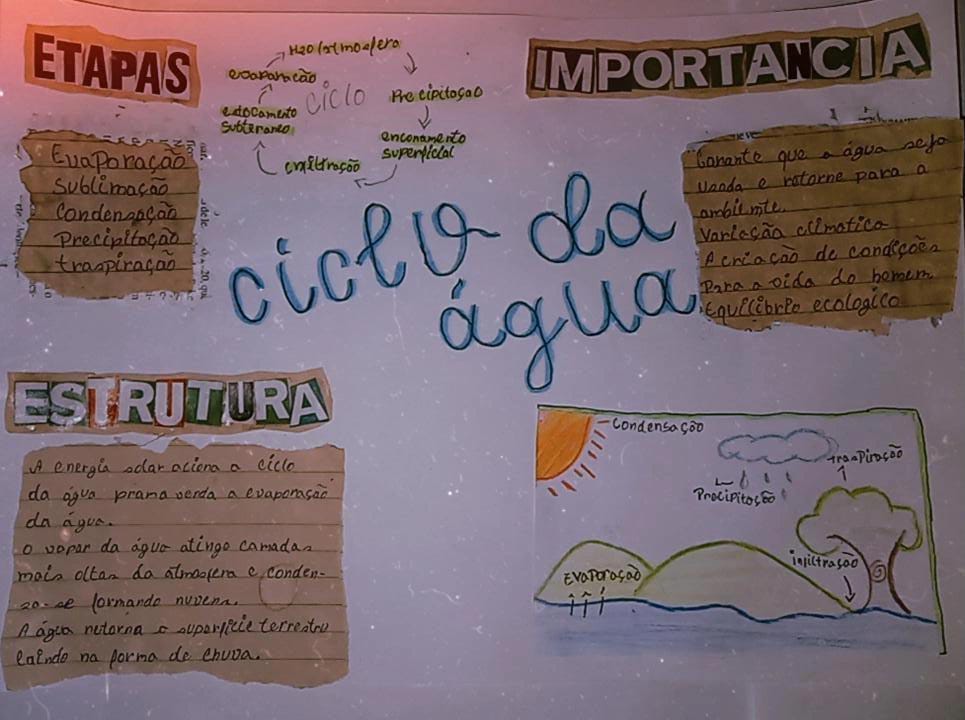 ETAPAS
Evaporação
Sublimação
Condensação
Precipitação
traspiração
H2O/atmosfera
Precipitação
superficial
infiltração
Subterraneo
evaporação
ciclo
ciclo da
água
IMPORTANCIA
Garante que a água seja
usada e retorne para a
ambiente.
Variação climatica
A criação de condições
Para a vida do homem
Equilibrio ecologico
ESTRUTURA
A energia solar aciona a ciclo
da água prama verda a evaporação
da água.
O vapor da água atinge camadas
mais altas da atmosfera e conden-
za-se formando nuvens.
A água retorna a superficie terrestre
caindo na forma de chuva.
Condensação
traspiração
Precipitação
infiltração
Evaporação